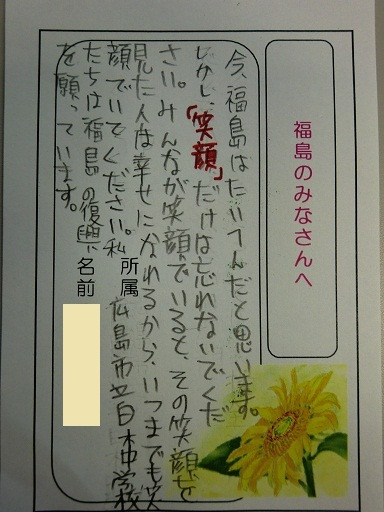 福島のみなさんへ
今、福島はたいへんだと思います。
しかし、「笑顔」だけは忘れないでくだ
さい。みんなが笑顔でいると、その笑顔を
見た人は幸せになれるから、いつまでも笑
顔でいてください。私
たちは福島の復興
を願っています。
所属 広島市立白木中学校
名前